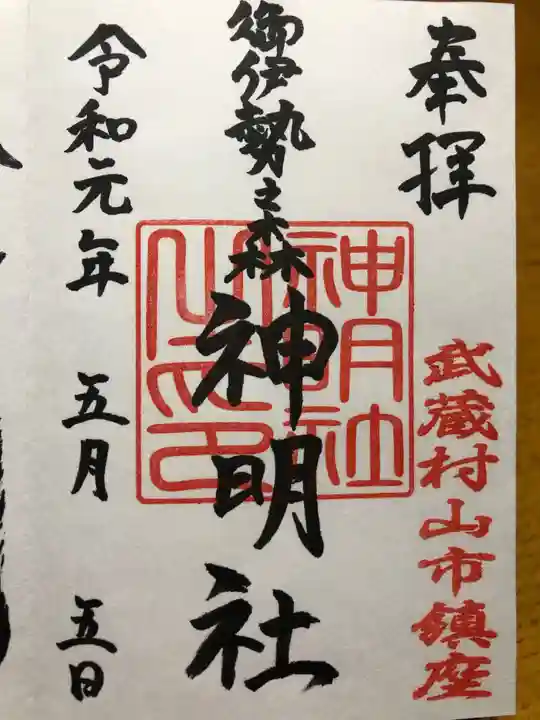 奉拝
武蔵村山市鎮座
御伊勢之森
神明社
令和元年 五月 五日